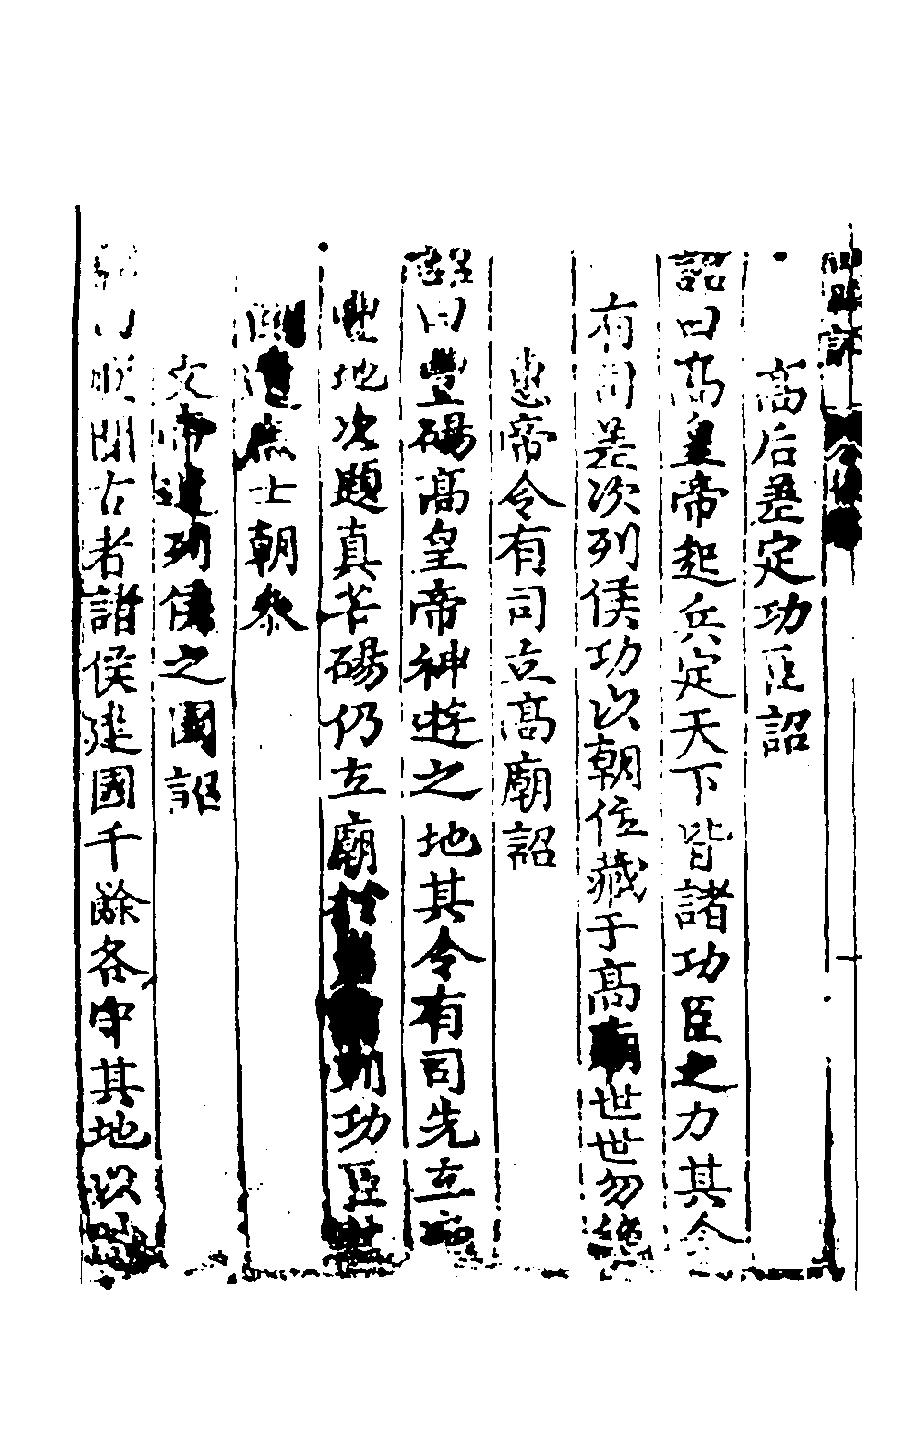 高后差定功臣詔
詔曰高皇帝起兵定天下皆諸功臣之力其令
有司差次列侯功以朝位藏于高廟世世勿絶
惠帝令有司立高廟詔
詔曰豐碭高皇帝神遊之地其令有司先立廟
豐地次題真芒碭仍立廟於功臣
士朝參
文帝遣列侯之國詔
詔曰朕聞古者諸侯建國千餘各守其地以